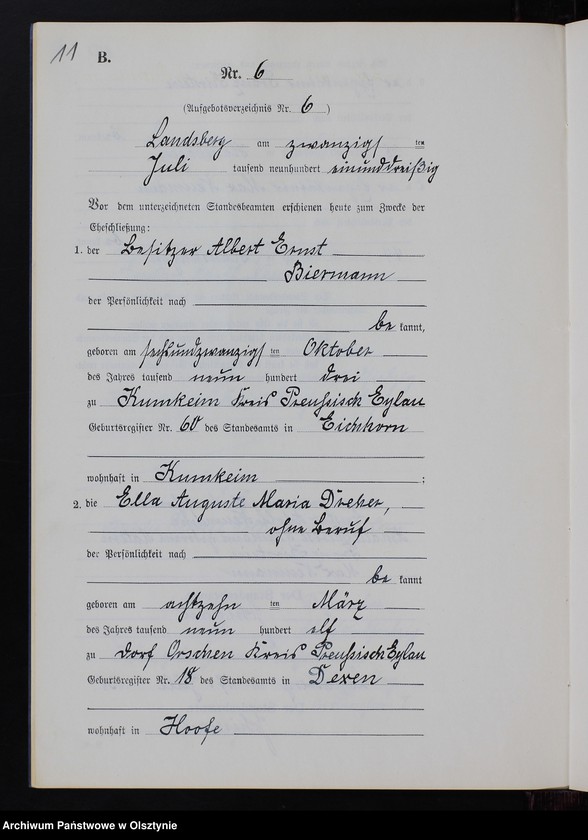 11
B.
Nr. 6
(Aufgebotsverzeichnis Nr. 6)
Landsberg am zwanzigsten
Juli tausend neunhundert einunddreißig
Vor dem unterzeichneten Standesbeamten erschienen heute zum Zwecke der
Eheschließung:
1. der Besitzer Albert Ernst
Biermann
der Persönlichkeit nach
be kannt,
geboren am sechsundzwanzigsten Oktober
des Jahres tausend neun hundert drei
zu Kumkeim Kreis Preußisch Eylau
Geburtsregister Nr. 60 des Standesamts in Eichhorn
wohnhaft in Kumkeim ;
2. die Ella Auguste Maria Dreher,
ohne Beruf
der Persönlichkeit nach
be kannt
geboren am achtzehn ten März
des Jahres tausend neun hundert elf
zu Dorf Orschen Kreis Preußisch Eylau
Geburtsregister Nr. 18 des Standesamts in Dexen
wohnhaft in Hoofe
Archiwum Państwowe w Olsztynie